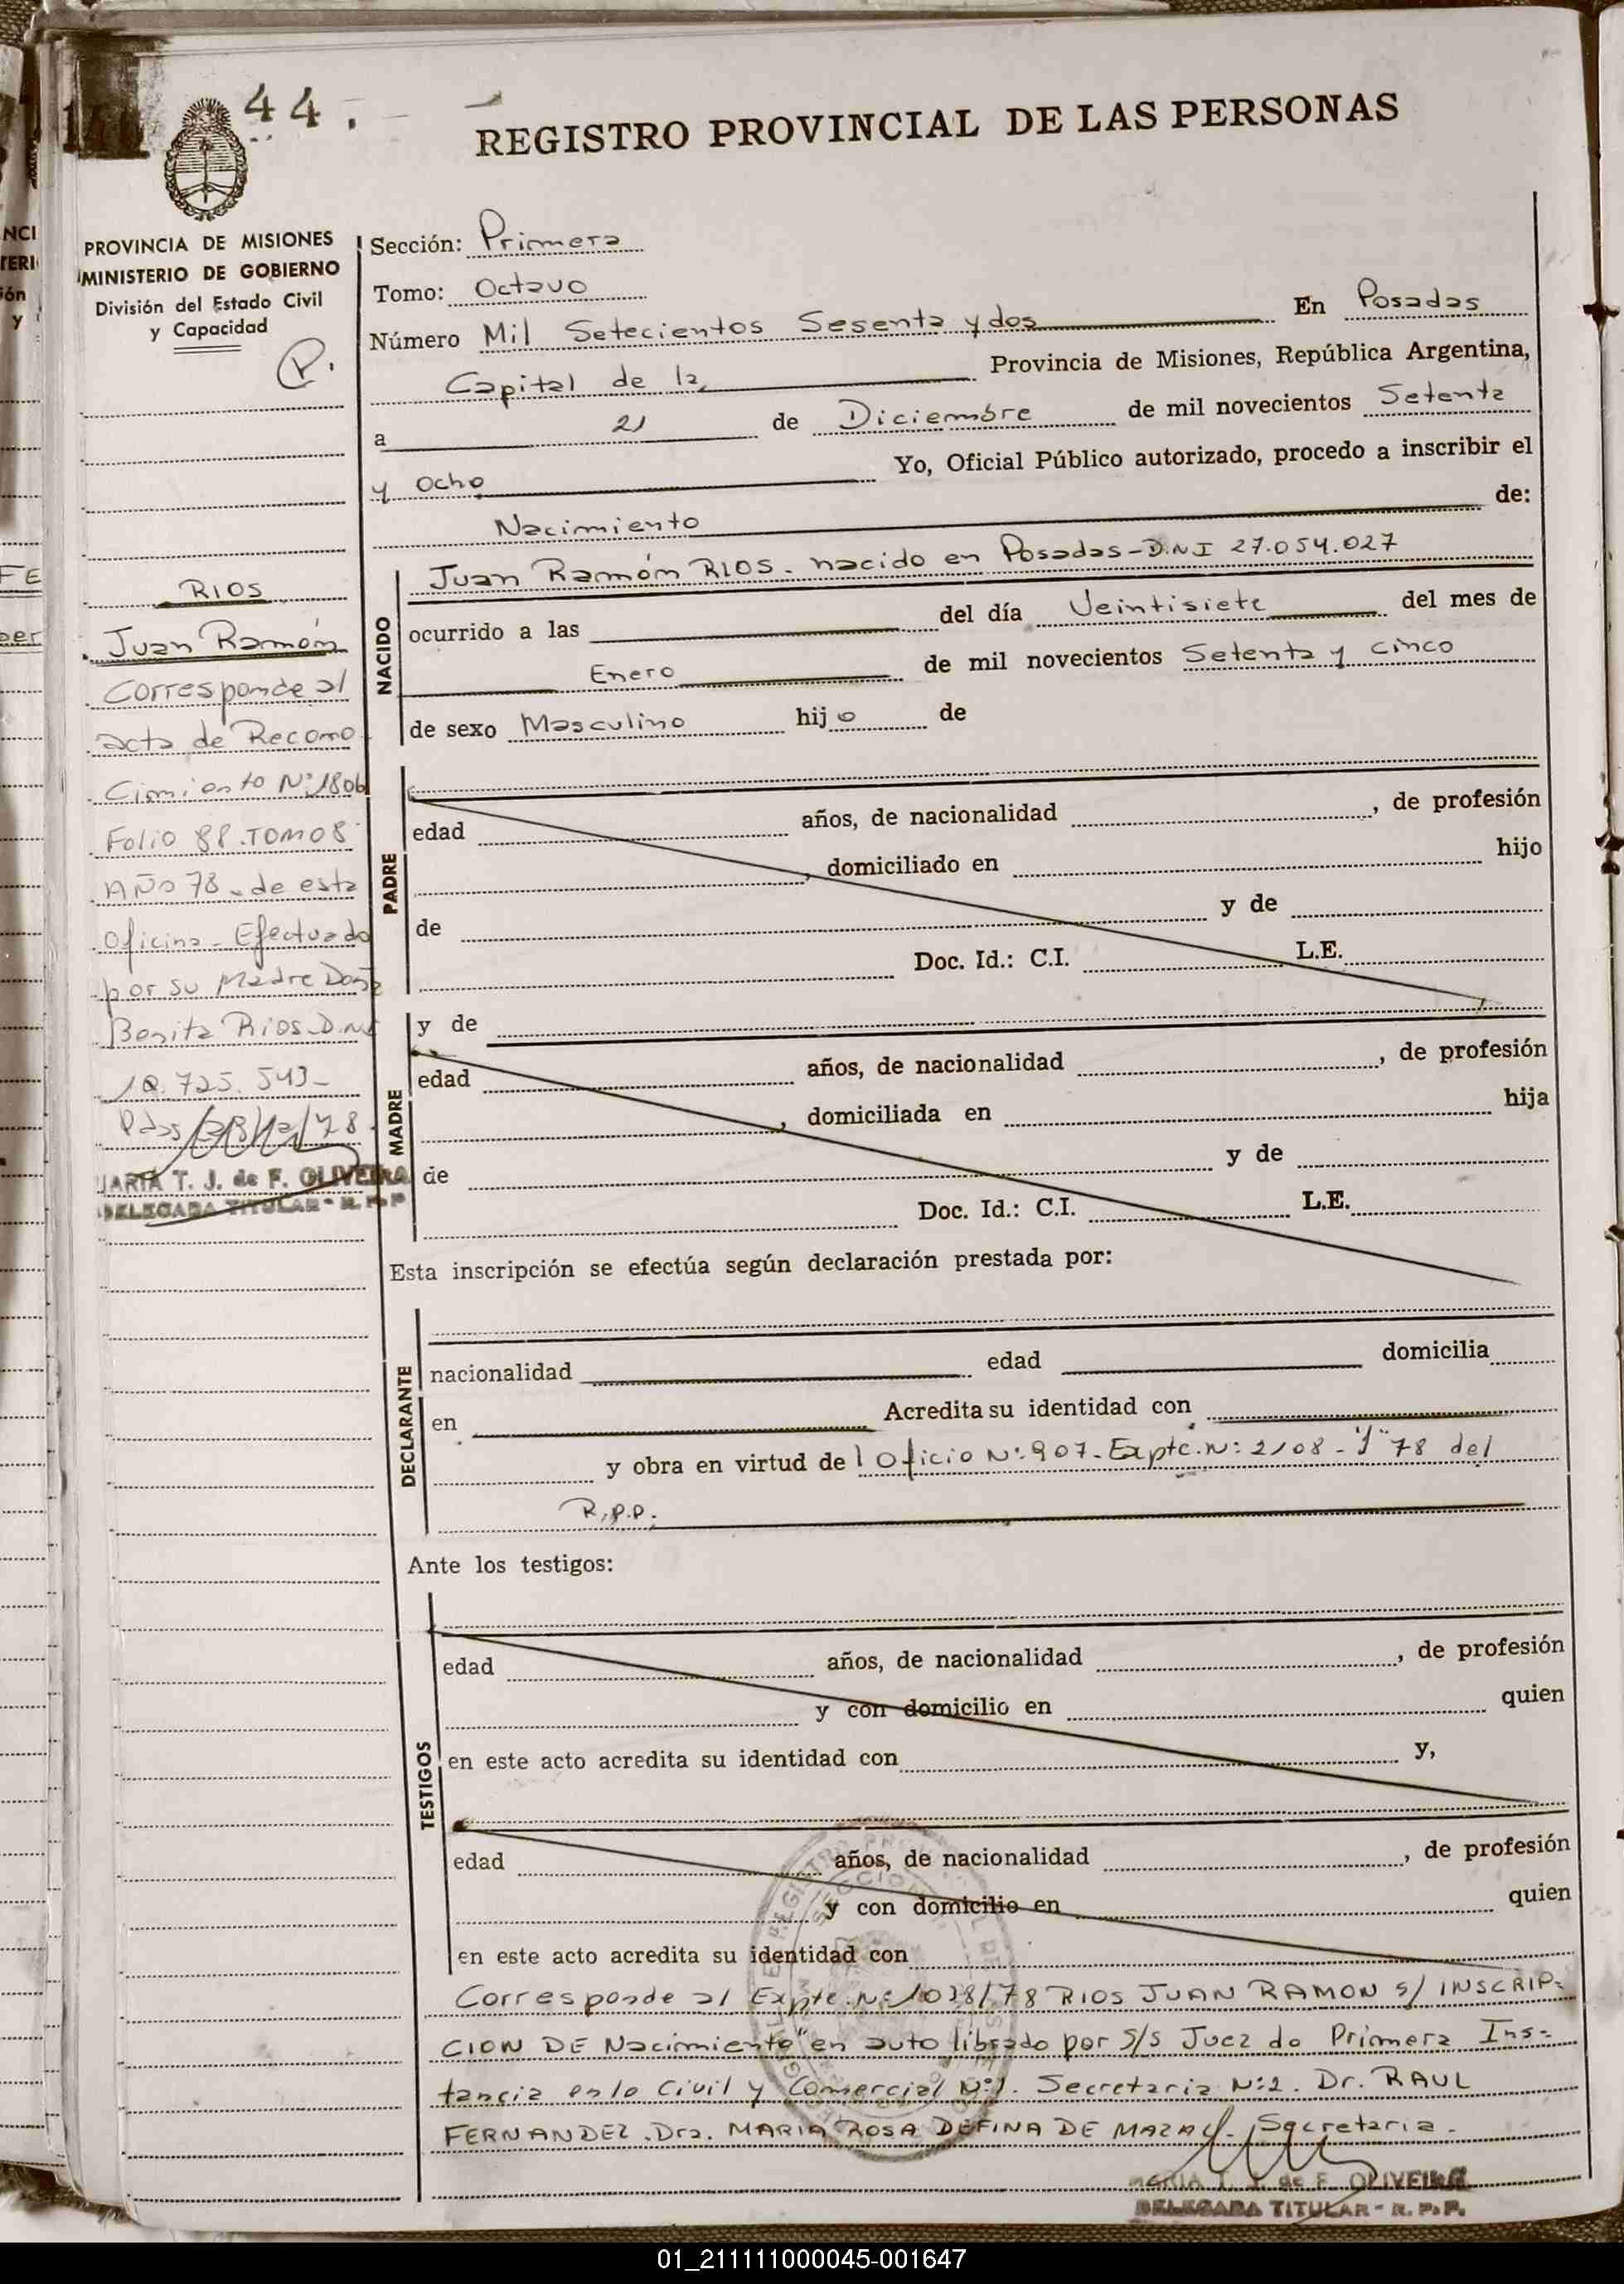 44.
REGISTRO PROVINCIAL DE LAS PERSONAS
PROVINCIA DE MISIONES
MINISTERIO DE GOBIERNO
División del Estado Civil
y Capacidad
P.
RIOS
Juan Ramón
Corresponde al
acta de Recono
Cimiento Nº 1806
Folio 88. TOMO 8
AÑO 78 - de esta
Oficina - Efectuado
por su Madre Doña
Benita Rios D.N.I
725.543-
Pdas 28/12/78
MARIA T. J. de F. OLIVEIRA
DELEGADA TITULAR - R. P. P
Sección: Primera
Tomo: Octavo
Número Mil Setecientos Sesenta y dos En Posadas
Capital de la Provincia de Misiones, República Argentina,
a 21 de Diciembre de mil novecientos Setenta
y Ocho Yo, Oficial Público autorizado, procedo a inscribir el
Nacimiento de:
NACIDO
Juan Ramón RIOS - nacido en Posadas - D.N.I 27.054.027
ocurrido a las del día Veintisiete del mes de
Enero de mil novecientos Setenta y cinco
de sexo Masculino hijo de
PADRE
edad años, de nacionalidad , de profesión
, domiciliado en hijo
de y de
Doc. Id.: C.I. L.E.
MADRE
y de
edad años, de nacionalidad , de profesión
, domiciliada en hija
de y de
Doc. Id.: C.I. L.E.
Esta inscripción se efectúa según declaración prestada por:
DECLARANTE
nacionalidad edad domicilia
en Acredita su identidad con
y obra en virtud de l Oficio Nº 907 - Expte. Nº 2108 - "J" 78 del
R.P.P.
Ante los testigos:
TESTIGOS
edad años, de nacionalidad , de profesión
y con domicilio en quien
en este acto acredita su identidad con y,
edad años, de nacionalidad , de profesión
y con domicilio en quien
en este acto acredita su identidad con
Corresponde al Expte. Nº 1038/78 RIOS JUAN RAMON S/ INSCRIP-
CION DE Nacimiento" en auto librado por S/S Juez de Primera Ins-
tancia en lo Civil y Comercial Nº 1. Secretaria Nº 2. Dr. RAUL
FERNANDEZ. Dra. MARIA ROSA DEFINA DE Secretaria.
MARIA T. J. de F. OLIVEIRA
DELEGADA TITULAR - R. P. P.
01_211111000045-001647